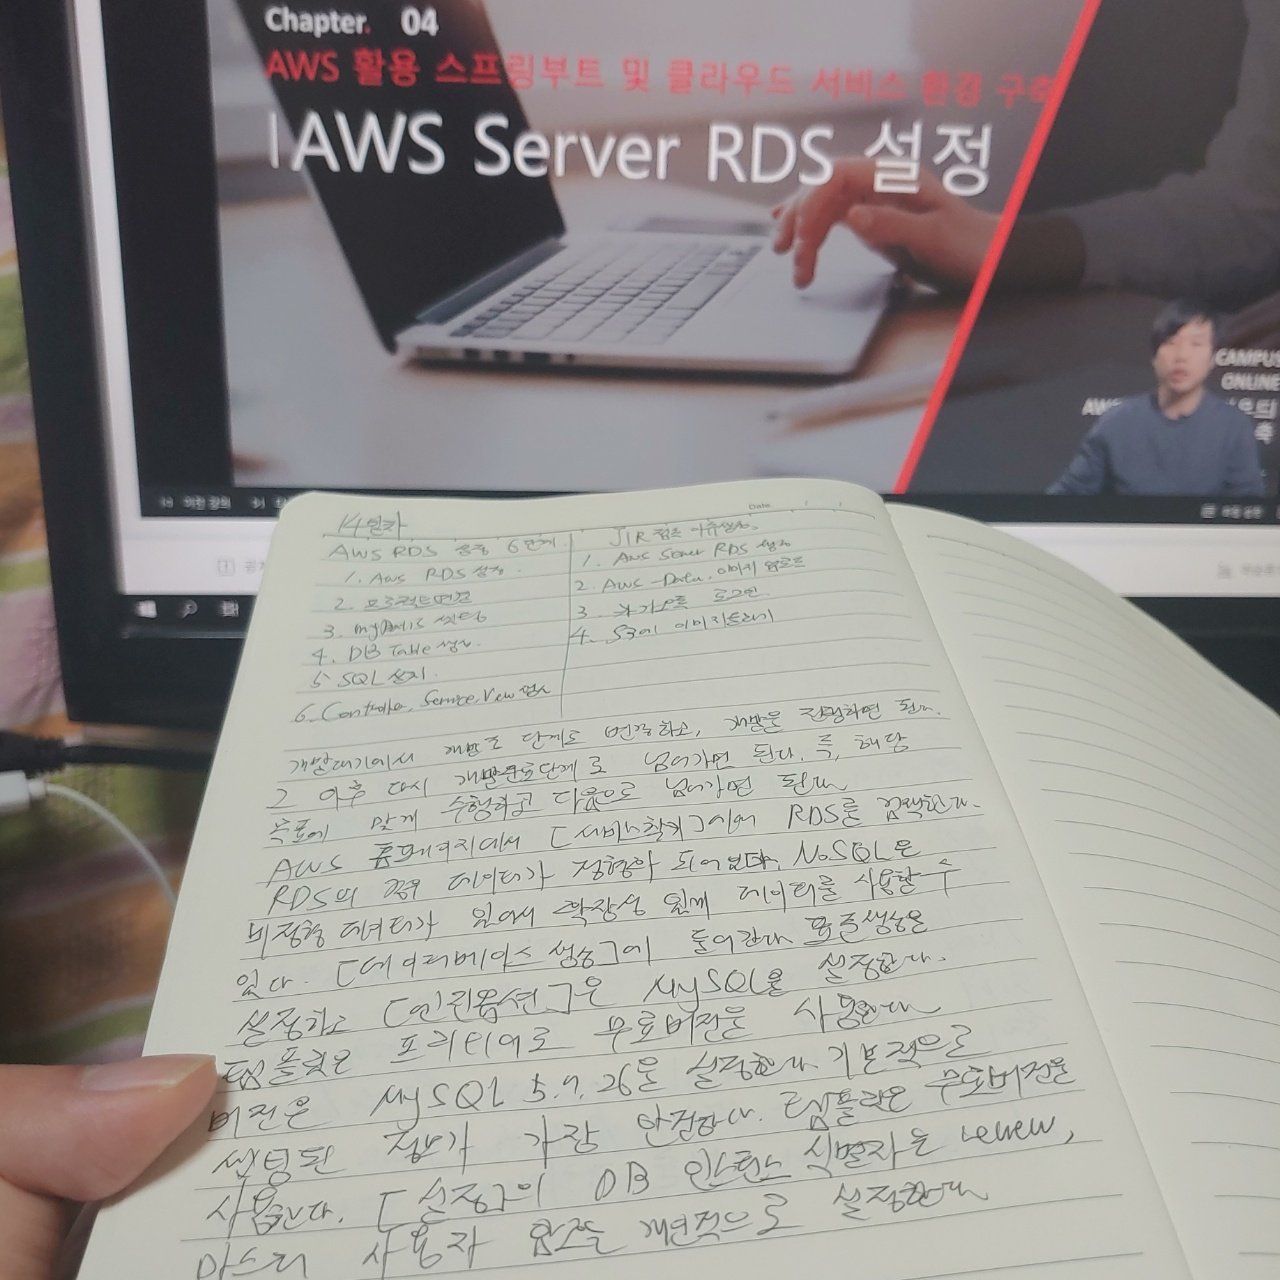 Chapter. 04
AWS 활용 스프링부트 및 클라우드 서비스 환경 구축
AWS Server RDS 설정
CAMPUS
ONLINE
AW
축
이전 강의
Date
14일차
AWS RDS 6단계
1. AWS RDS 설정
2. 프로젝트 변경
3. mybatis 셋팅
4. DB Table 생성
5 SQL 설치
6. Controller, Service, View
1. AWS Server RDS 설정
2. AWS - Data. 이미지 업로드
3. 로그인
4. S3에 이미지 올리기
개발대기에서 개발중 단계로 변경하고, 개발을 진행하면 된다.
그 이후 다시 개발완료단계로 넘어가면 된다. 즉, 해당
목표에 맞게 수행하고 다음으로 넘어가면 된다
AWS 홈페이지에서 [서비스찾기]에서 RDS를 검색한다.
RDS의 경우 데이터가 정형화 되어있다, NoSQL은
비정형 데이터가 있어서 확장성 있게 데이터를 사용할 수
있다. [데이터베이스 생성]에 들어간다 표준생성은
설정하고 [엔진옵션]은 MySQL을 설정한다.
템플릿은 프리티어로 무료버전을 사용한다
버전은 MySQL 5.7.26을 설정한다 기본적으로
셋팅된 정보가 가장 안전하다. 템플릿은 무료버전을
사용한다. [설정]의 DB 인스턴스 식별자는 renew,
마스터 사용자 암호는 개인적으로 설정한다